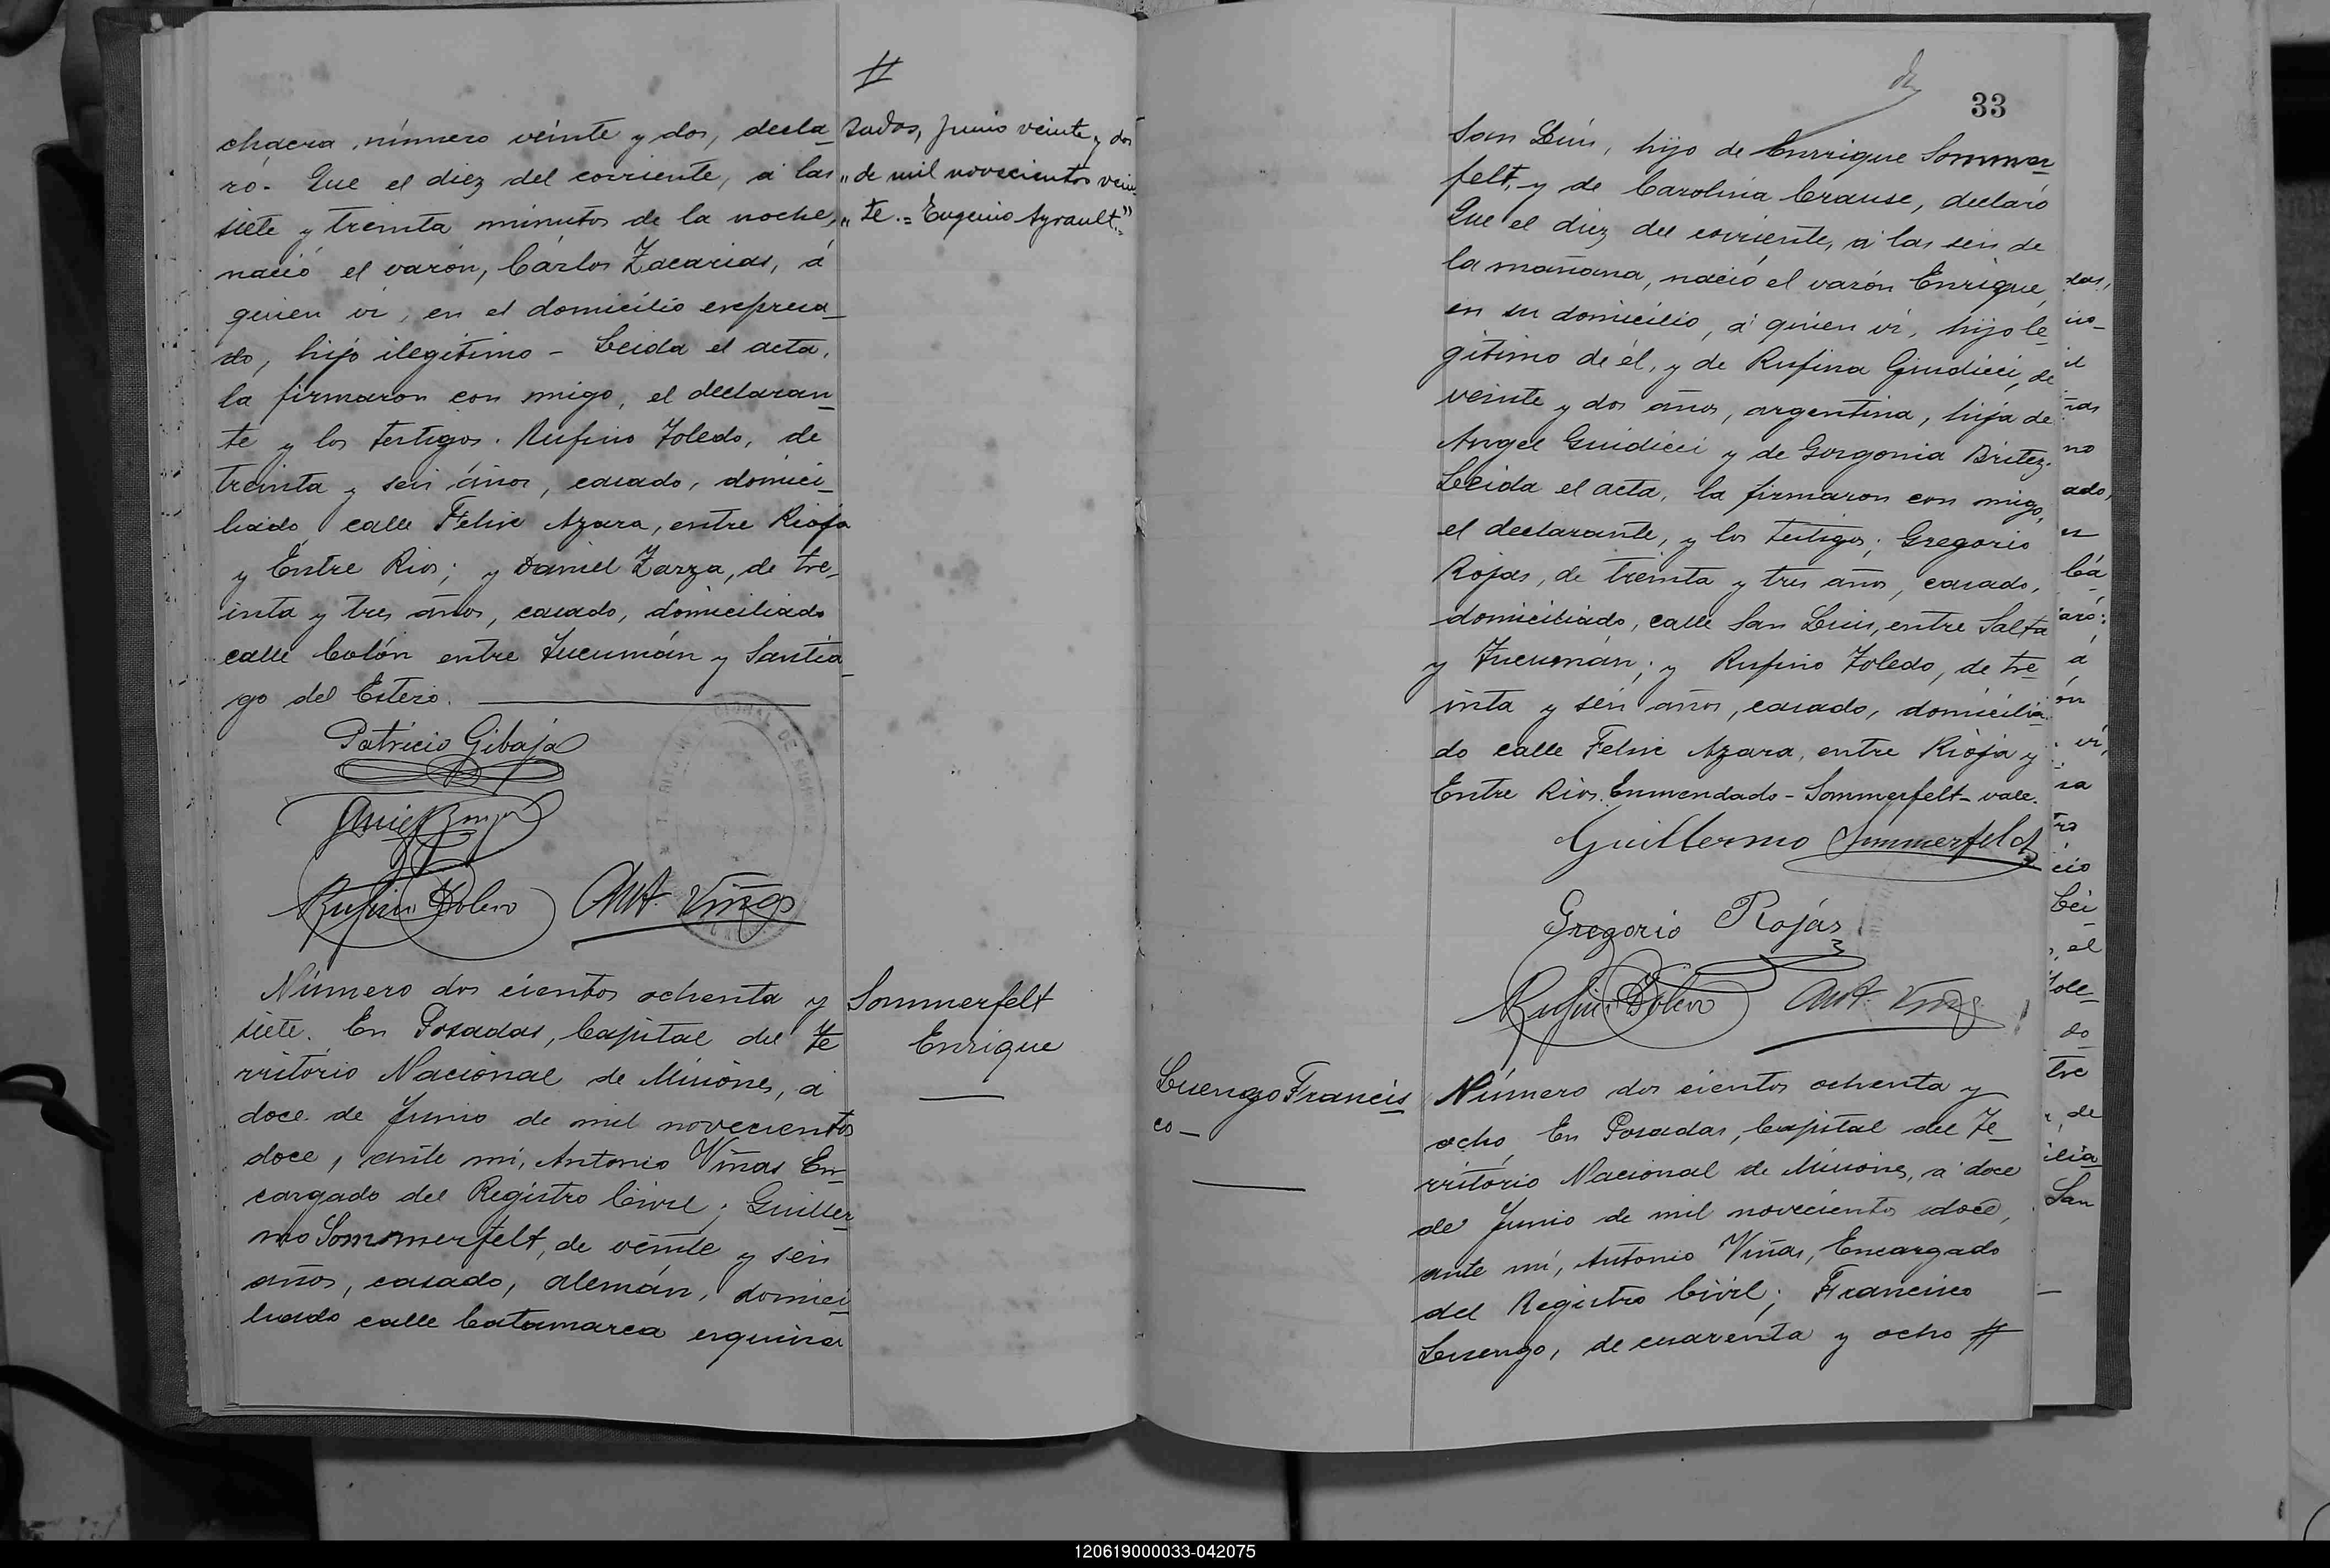 chacra, número veinte y dos, decla-
ró- Que el diez del corriente, á las
siete y treinta minutos de la noche,
nació el varón, Cárlos Zacarias, á
quien vi, en el domicilio expresa-
do, hijo ilegítimo - Leida el acta,
la firmaron con migo, el declaran-
te y los testigos. Rufino Toledo, de
treinta y seis años, casado, domici-
liado calle Felix Azara, entre Rioja
y Entre Rios; y Daniel Zarza, de tre-
inta y tres años, casado, domiciliado
calle Colón entre Tucumán y Santia-
go del Estero.
Patricio Gibaja
Rufino Toledo Ant. Viñas
Número dos cientos ochenta y
siete. En Posadas, Capital del Te-
rritorio Nacional de Misiones, á
doce de Junio de mil novecientos
doce, ante mí, Antonio Viñas En-
cargado del Registro Civil; Guiller-
mo Sommerfelt, de veinte y seis
años, casado, alemán, domici-
liado calle Catamarca esquina
#
sadas, Junio veinte y dos
"de mil novecientos vein-
"te.= Eugenio Ayrault."=
Sommerfelt
Enrique
33
San Luis, hijo de Enrrique Sommer-
felt, y de Carolina Crause, declaró
Que el diez del corriente, á las seis de
la mañana, nació el varón Enrique,
en su domicilio, á quien vi, hijo le-
gítimo de él, y de Rufina Giudici, de
veinte y dos años, argentina, hija de
Angel Guidici y de Gorgonia Britez.
Leeida el acta, la firmaron con migo,
el declarante, y los testigos; Gregorio
Rojas, de treinta y tres años, casado,
domiciliado, calle San Luis, entre Salta
y Tucumán; y Rufino Toledo, de tre-
inta y seis años, casado, domicilia-
do calle Felix Azara, entre Rioja y
Entre Rios. Enmendado - Sommerfelt - vale.
Guillermo Sommerfeld
Gregorio Rojas
Rufino Toledo Ant. Viñas
Luengo Francis-
co-
Número dos cientos ochenta y
ocho, En Posadas, Capital del Te-
rritorio Nacional de Misiones, á doce
de Junio de mil novecientos doce,
ante mí, Antonio Viñas, Encargado
del Registro Civil; Francisco
Luengo, de cuarenta y ocho #
120619000033-042075